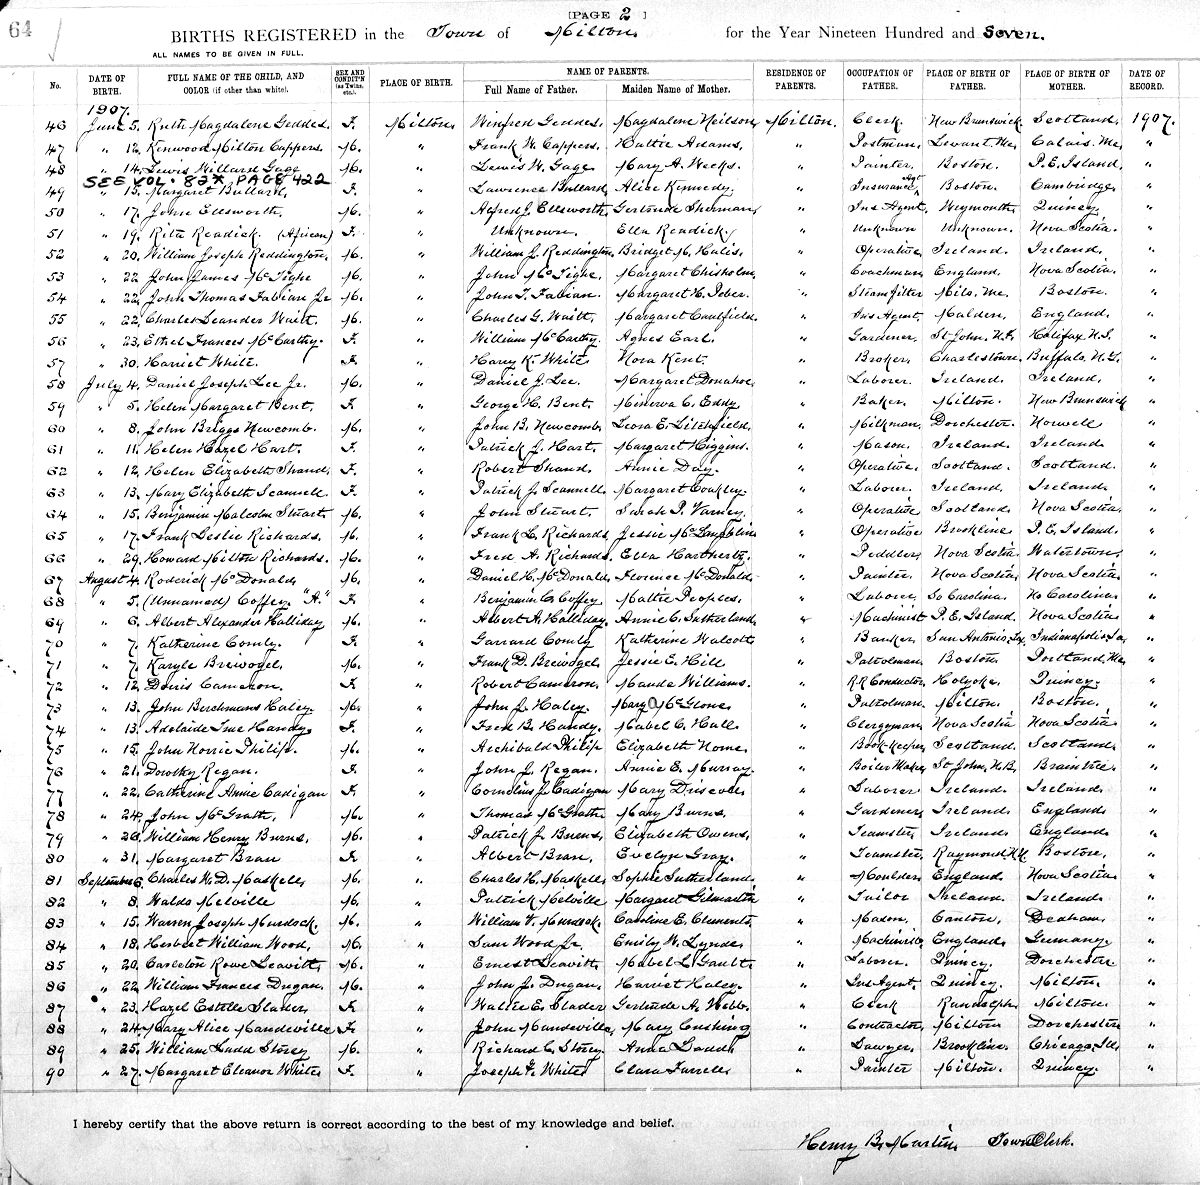 64
[PAGE 2 ]
BIRTHS REGISTERED in the Town of Milton for the Year Nineteen Hundred and Seven.
ALL NAMES TO BE GIVEN IN FULL.
No. DATE OF BIRTH. FULL NAME OF THE CHILD, AND COLOR (if other than white). SEX AND CONDIT'N (as Twins, etc.). PLACE OF BIRTH. NAME OF PARENTS. Full Name of Father. Maiden Name of Mother. RESIDENCE OF PARENTS. OCCUPATION OF FATHER. PLACE OF BIRTH OF FATHER. PLACE OF BIRTH OF MOTHER. DATE OF RECORD.
1907.
46 June 5. Ruth Magdalene Geddes. F. Milton. Winfred Geddes. Magdalene Neilson Milton. Clerk. New Brunswick. Scotland. 1907.
47 " 12. Kenwood Milton Cappers. M. " Frank W. Cappers. Hattie Adams. " Postman. Levant, Me. Calais, Me. "
48 " 14. Lewis Willard Gage M. " Lewis W. Gage. Mary A. Weeks. " Painter. Boston. P.E. Island. "
SEE VOL. 82* PAGE 422
49 " 15. Margaret Bullard. F. " Lawrence Bullard. Alice Kennedy. " Insurance Agt Boston. Cambridge. "
50 " 17. John Ellsworth. M. " Alfred J. Ellsworth. Gertrude Sherman. " Ins. Agent. Weymouth. Quincy. "
51 " 19. Rita Readick. (African) F. " Unknown. Ella Readick. " Unknown Unknown. Nova Scotia. "
52 " 20. William Joseph Reddington. M. " William J. Reddington. Bridget M. Halis. " Operative Ireland. Ireland. "
53 " 22. John James McTighe M. " John McTighe. Margaret Chisholm. " Coachman. England. Nova Scotia. "
54 " 22. John Thomas Fabian Jr. M. " John T. Fabian. Margaret H. " Steamfitter Milo, Me. Boston. "
55 " 22. Charles Leander Waitt. M. " Charles G. Waitt. Margaret Caulfield. " Ins. Agent. Malden. England. "
56 " 23. Ethel Frances McCarthy. F. " William McCarthy. Agnes Earl. " Gardener. St John, N.F. Halifax N.S. "
57 " 30. Harriet White. F. " Harry K. White Nora Kent. " Broker. Charlestown. Buffalo, N.Y. "
58 July 4. Daniel Joseph Lee Jr. M. " Daniel J. Lee. Margaret Donahoe. " Laborer. Ireland. Ireland. "
59 " 5. Helen Margaret Bent. F. " George H. Bent. Minerva C. Eddy. " Baker. Milton. New Brunswick "
60 " 8. John Briggs Newcomb. M. " John B. Newcomb. Leora E. Litchfield. " Milkman. Dorchester. Norwell "
61 " 11. Helen Hazel Hart. F. " Patrick J. Hart. Margaret Higgins. " Mason. Ireland. Ireland "
62 " 12. Helen Elizabeth Shand. F. " Robert Shand. Annie Day. " Operative. Scotland. Scotland. "
63 " 13. Mary Elizabeth Scannell. F. " Patrick J. Scannell. Margaret Coakley. " Laborer. Ireland. Ireland. "
64 " 15. Benjamin Malcolm Stuart. M. " John Stuart. Sarah I. Varney. " Operative Scotland. Nova Scotia. "
65 " 17. Frank Leslie Richards. M. " Frank L. Richards. Jessie McLaughlin " Operative Brookline. P.E. Island. "
66 " 29. Howard Milton Richards. M. " Fred A. Richards. Ella Hartherty. " Peddler. Nova Scotia. Watertown. "
67 August 4. Roderick McDonald. M. " Daniel H. McDonald. Florence McDonald. " Painter. Nova Scotia. Nova Scotia. "
68 " 5. (Unnamed) Coffey. "A." F. " Benjamin C. Coffey. Mattie Peoples. " Laborer. So Carolina. No Carolina. "
69 " 6. Albert Alexander Halliday M. " Albert A. Halliday. Annie C. Sutherland. " Machinist P.E. Island. Nova Scotia "
70 " 7. Katherine Comly. F. " Garrard Comly Katherine Walcott " Banker. San Antonio, Tx. Indianapolis, Ia. "
71 " 7. Karyle Brewogel. M. " Frank D. Brewogel. Jessie E. Hill " Patrolman. Boston. Portland, Me. "
72 " 12. Doris Cameron. F. " Robert Cameron. Maude Williams. " RR Conductor. Holyoke. Quincy. "
73 " 13. John Berchmans Haley. M. " John J. Haley. Mary A McGlone. " Patrolman. Milton. Boston. "
74 " 13. Adelaide True Handy. F. " Fred B. Handy. Mabel C. Hall " Clergyman. Nova Scotia. Nova Scotia. "
75 " 15. John Norrie Philip. M. " Archibald Philip Elizabeth Nome. " Bookkeeper. Scotland. Scotland. "
76 " 21. Dorothy Regan. F. " John J. Regan. Annie E. Murray. " Boiler Maker. St John, N.B. "
77 " 22. Catherine Annie Cadigan F. " Cornelius J. Cadigan Mary Driscoll. " Laborer Ireland. Ireland. "
78 " 24. John McGrath. M. " Thomas McGrath. Mary Burns. " Gardener. Ireland. England. "
79 " 26. William Henry Burns. M. " Patrick J. Burns. Elizabeth Owens. " Teamster. Ireland. England. "
80 " 31. Margaret Brau F. " Albert Brau. Evelyn Gray. " Teamster. Raymond, N.H. Boston. "
81 September 6. Charles W. D. Maskell. M. " Charles H. Maskell. Sophie Sutherland. " Moulder. England. Nova Scotia "
82 " 8. Waldo Melville M. " Patrick Melville Margaret Gilmartin " Tailor Ireland. Ireland. "
83 " 15. Warren Joseph Murdock. M. " William F. Murdock. Caroline E. Clements. " Mason. Canton. Dedham. "
84 " 18. Herbert William Wood. M. " Sam Wood Jr. Emily W. Lynde. " Machinist. England. Germany. "
85 " 20. Carleton Rowe Leavitt. M. " Ernest Leavitt. Mabel L. Gault. " Laborer. Quincy. Dorchester "
86 " 22. William Francis Dugan. M. " John J. Dugan. Harriet Haley. " Ins. Agent. Quincy. Milton. "
87 " 23. Hazel Estelle Slader. F. " Walter E. Slader Gertrude A. Webb. " Clerk Randolph. Milton. "
88 " 24. Mary Alice Mandeville F. " John Mandeville. Mary Cushing " Contractor. Milton Dorchester. "
89 " 25. William Ladd Storey M. " Richard C. Storey. Anna Ladd. " Lawyer. Brookline. Chicago, Ill. "
90 " 27. Margaret Eleanor White. F. " Joseph F. White. Clara Farrell. " Painter Milton. Quincy. "
I hereby certify that the above return is correct according to the best of my knowledge and belief.
Henry B. Martin, Town Clerk.